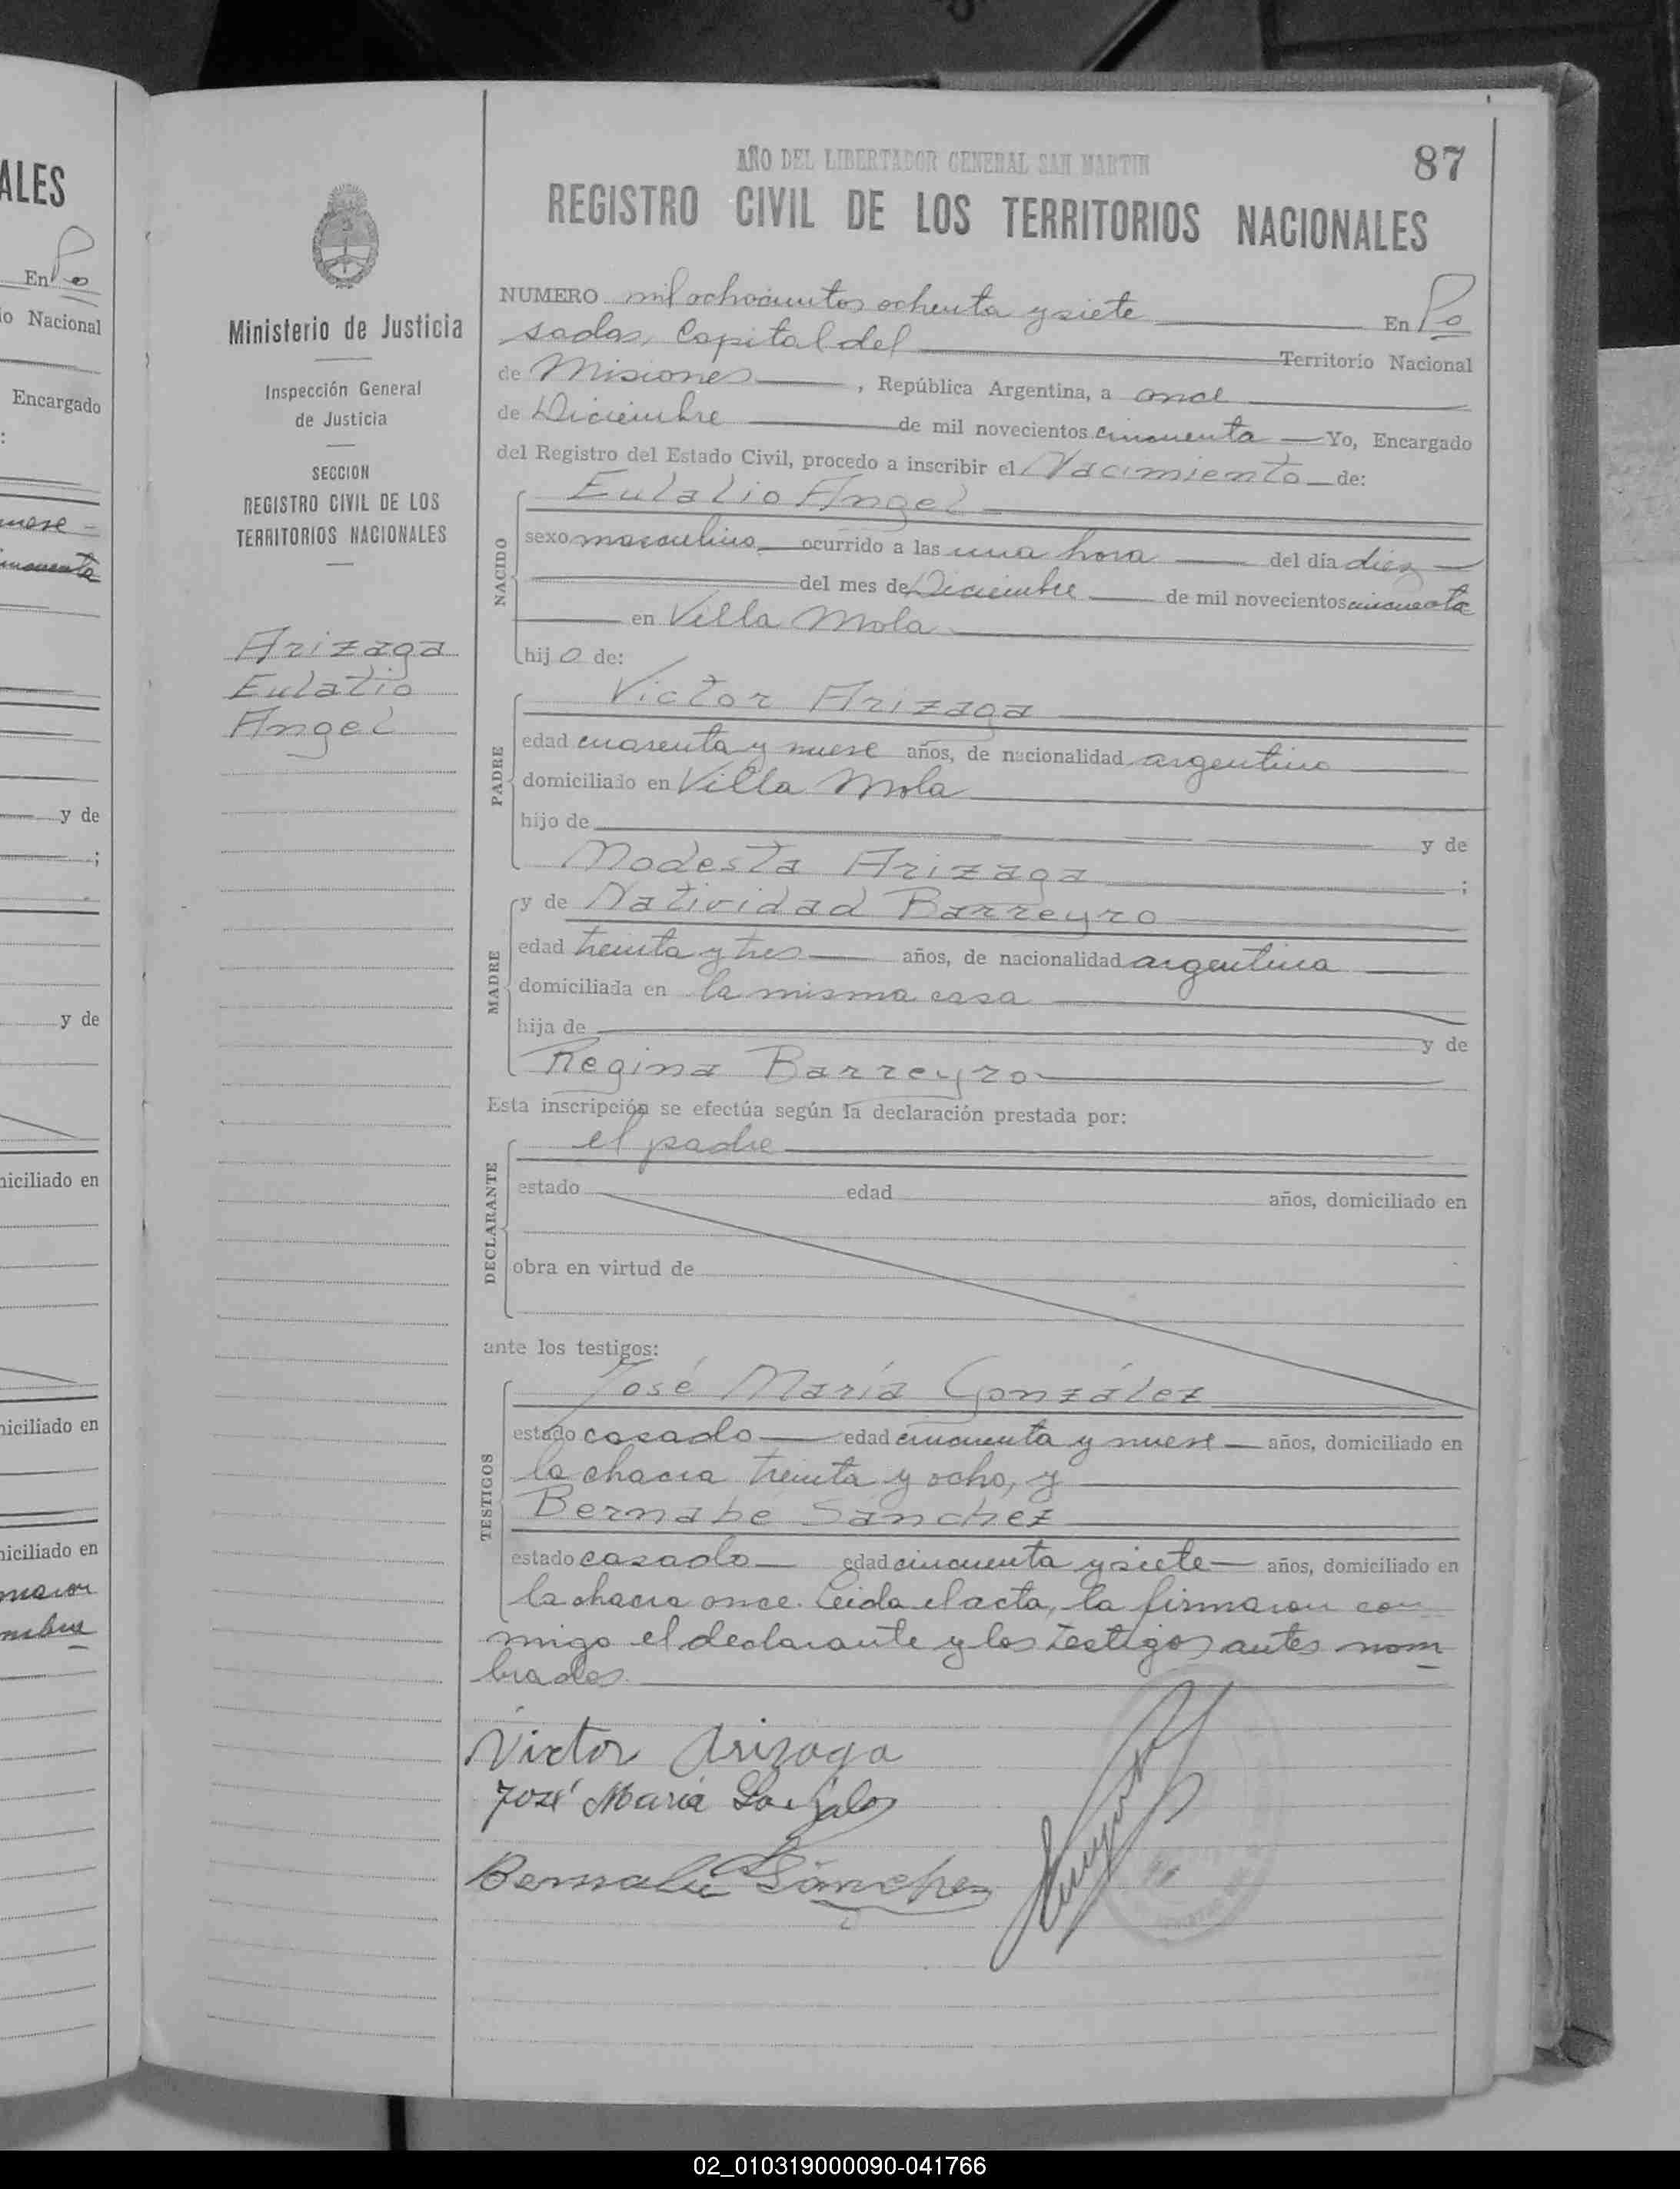 ALES
En Po
io Nacional
Encargado
:
nueve
cincuenta
y de
;
y de
niciliado en
niciliado en
niciliado en
Ministerio de Justicia
Inspección General
de Justicia
SECCION
REGISTRO CIVIL DE LOS
TERRITORIOS NACIONALES
Arizaga
Eulalio
Angel
AÑO DEL LIBERTADOR GENERAL SAN MARTIN
87
REGISTRO CIVIL DE LOS TERRITORIOS NACIONALES
NUMERO mil ochocientos ochenta y siete En Po
sadas, Capital del Territorio Nacional
de Misiones, República Argentina, a once
de Diciembre de mil novecientos cincuenta Yo, Encargado
del Registro del Estado Civil, procedo a inscribir el Nacimiento de:
Eulalio Angel
NACIDO
sexo masculino ocurrido a las una hora del día diez
del mes de Diciembre de mil novecientos cincuenta
en Villa Mola
hijo de:
Victor Arizaga
PADRE
edad cuarenta y nueve años, de nacionalidad argentino
domiciliado en Villa Mola
hijo de y de
Modesta Arizaga ;
MADRE
y de Natividad Barreyro
edad treinta y tres años, de nacionalidad argentina
domiciliada en la misma casa
hija de y de
Regina Barreyro
Esta inscripción se efectúa según la declaración prestada por:
el padre
DECLARANTE
estado edad años, domiciliado en
obra en virtud de
ante los testigos:
José María González
TESTIGOS
estado casado edad cincuenta y nueve años, domiciliado en
la chacra treinta y ocho, y
Bernabe Sánchez
estado casado edad cincuenta y siete años, domiciliado en
la chacra once. Leida el acta, la firmaron con
migo el declarante y los testigos antes nom
brados.
Victor Arizaga
José María Gonzales
Bernabé Sánchez
02_010319000090-041766